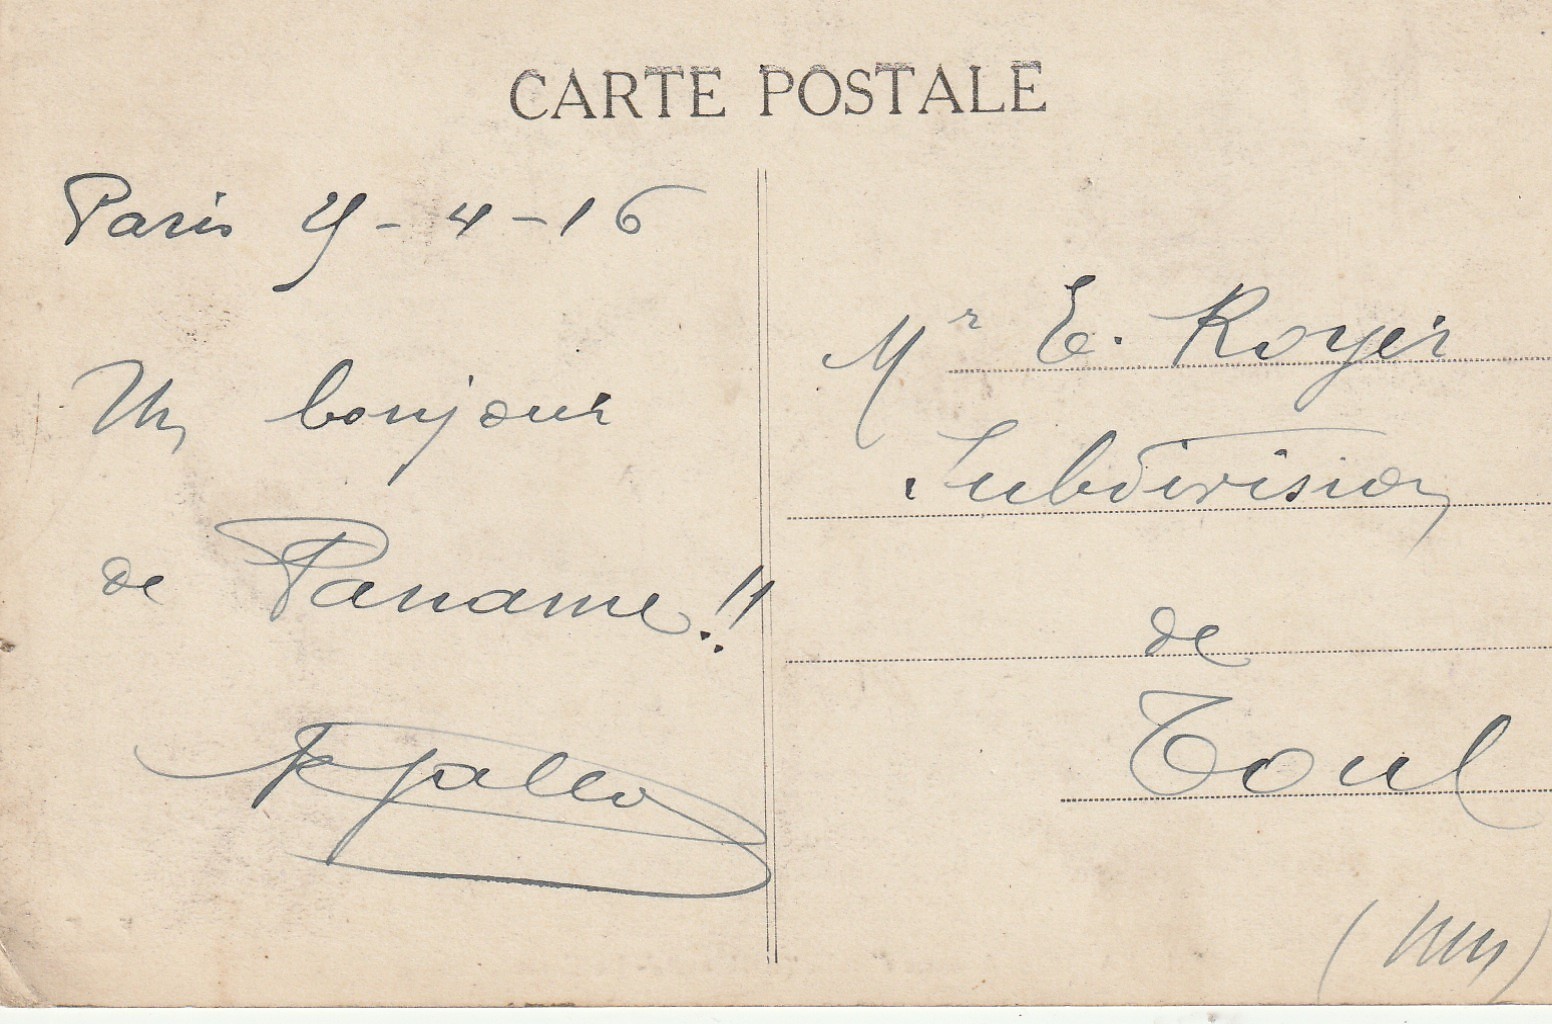 CARTE POSTALE
Paris 9-4-16
Un bonjour
de Paname!!
Mr E. Royer
Subdivision
de
Toul